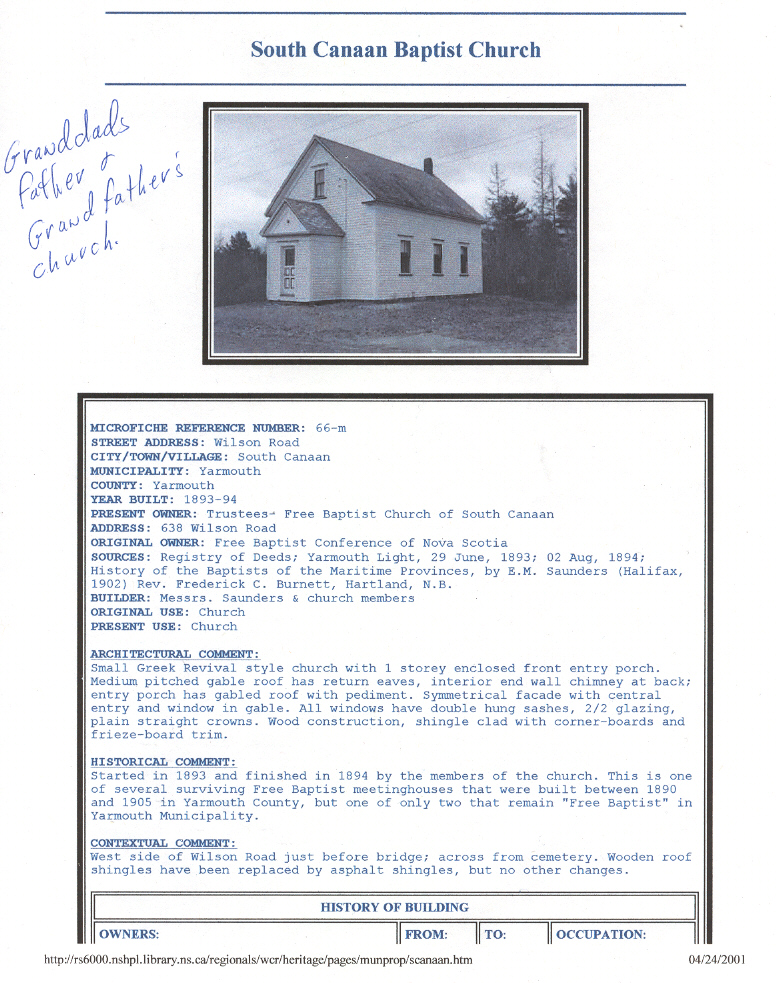 South Canaan Baptist Church
Granddads
father &
Grandfather's
church.
MICROFICHE REFERENCE NUMBER: 66-m
STREET ADDRESS: Wilson Road
CITY/TOWN/VILLAGE: South Canaan
MUNICIPALITY: Yarmouth
COUNTY: Yarmouth
YEAR BUILT: 1893-94
PRESENT OWNER: Trustees- Free Baptist Church of South Canaan
ADDRESS: 638 Wilson Road
ORIGINAL OWNER: Free Baptist Conference of Nova Scotia
SOURCES: Registry of Deeds; Yarmouth Light, 29 June, 1893; 02 Aug, 1894;
History of the Baptists of the Maritime Provinces, by E.M. Saunders (Halifax,
1902) Rev. Frederick C. Burnett, Hartland, N.B.
BUILDER: Messrs. Saunders & church members
ORIGINAL USE: Church
PRESENT USE: Church
ARCHITECTURAL COMMENT:
Small Greek Revival style church with 1 storey enclosed front entry porch.
Medium pitched gable roof has return eaves, interior end wall chimney at back;
entry porch has gabled roof with pediment. Symmetrical facade with central
entry and window in gable. All windows have double hung sashes, 2/2 glazing,
plain straight crowns. Wood construction, shingle clad with corner-boards and
frieze-board trim.
HISTORICAL COMMENT:
Started in 1893 and finished in 1894 by the members of the church. This is one
of several surviving Free Baptist meetinghouses that were built between 1890
and 1905 in Yarmouth County, but one of only two that remain "Free Baptist" in
Yarmouth Municipality.
CONTEXTUAL COMMENT:
West side of Wilson Road just before bridge; across from cemetery. Wooden roof
shingles have been replaced by asphalt shingles, but no other changes.
HISTORY OF BUILDING
OWNERS: FROM: TO: OCCUPATION:
http://rs6000.nshpl.library.ns.ca/regionals/wcr/heritage/pages/munprop/scanaan.htm 04/24/2001